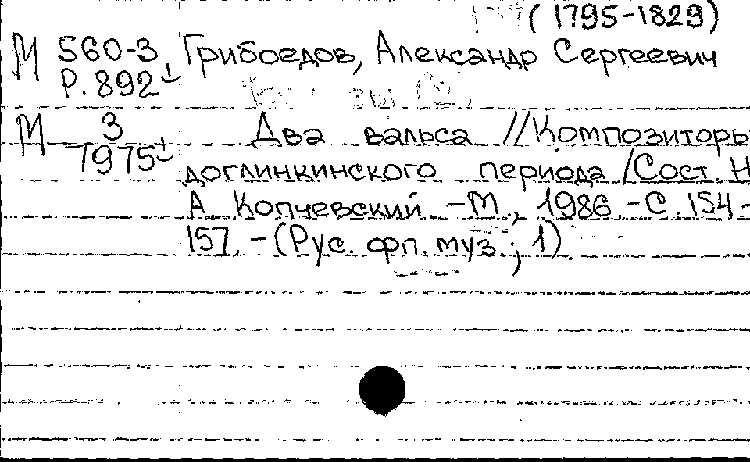 (1795-1829)
М 560-3 Грибоедов, Александр Сергеевич
Р.892
М 3 Два вальса // Композиторы
7975 доглинкинского периода / Сост. Н
А Копчевский. - М., 1986. - С. 154-
157. - (Рус. фп. муз.; 1)